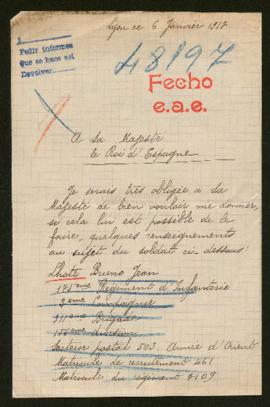 Lyon ce 6 Janvier 1918
Pedir informes
Que se hace así
Devolver
48197
Fecho
e.a.e.
A Sa Majesté
le Roi d'Espagne
Je serais très obligée à sa
Majesté de bien vouloir me donner,
si cela lui est possible de le
faire, quelques renseignements
au sujet du soldat ci-dessous:
Lhote Bruno Jean
Régiment d'Infanterie
2ème Compagnie
Brigade
division
Secteur postal 503. Armée d'Orient
Matricule de recrutement 461
Matricule du régiment 8109